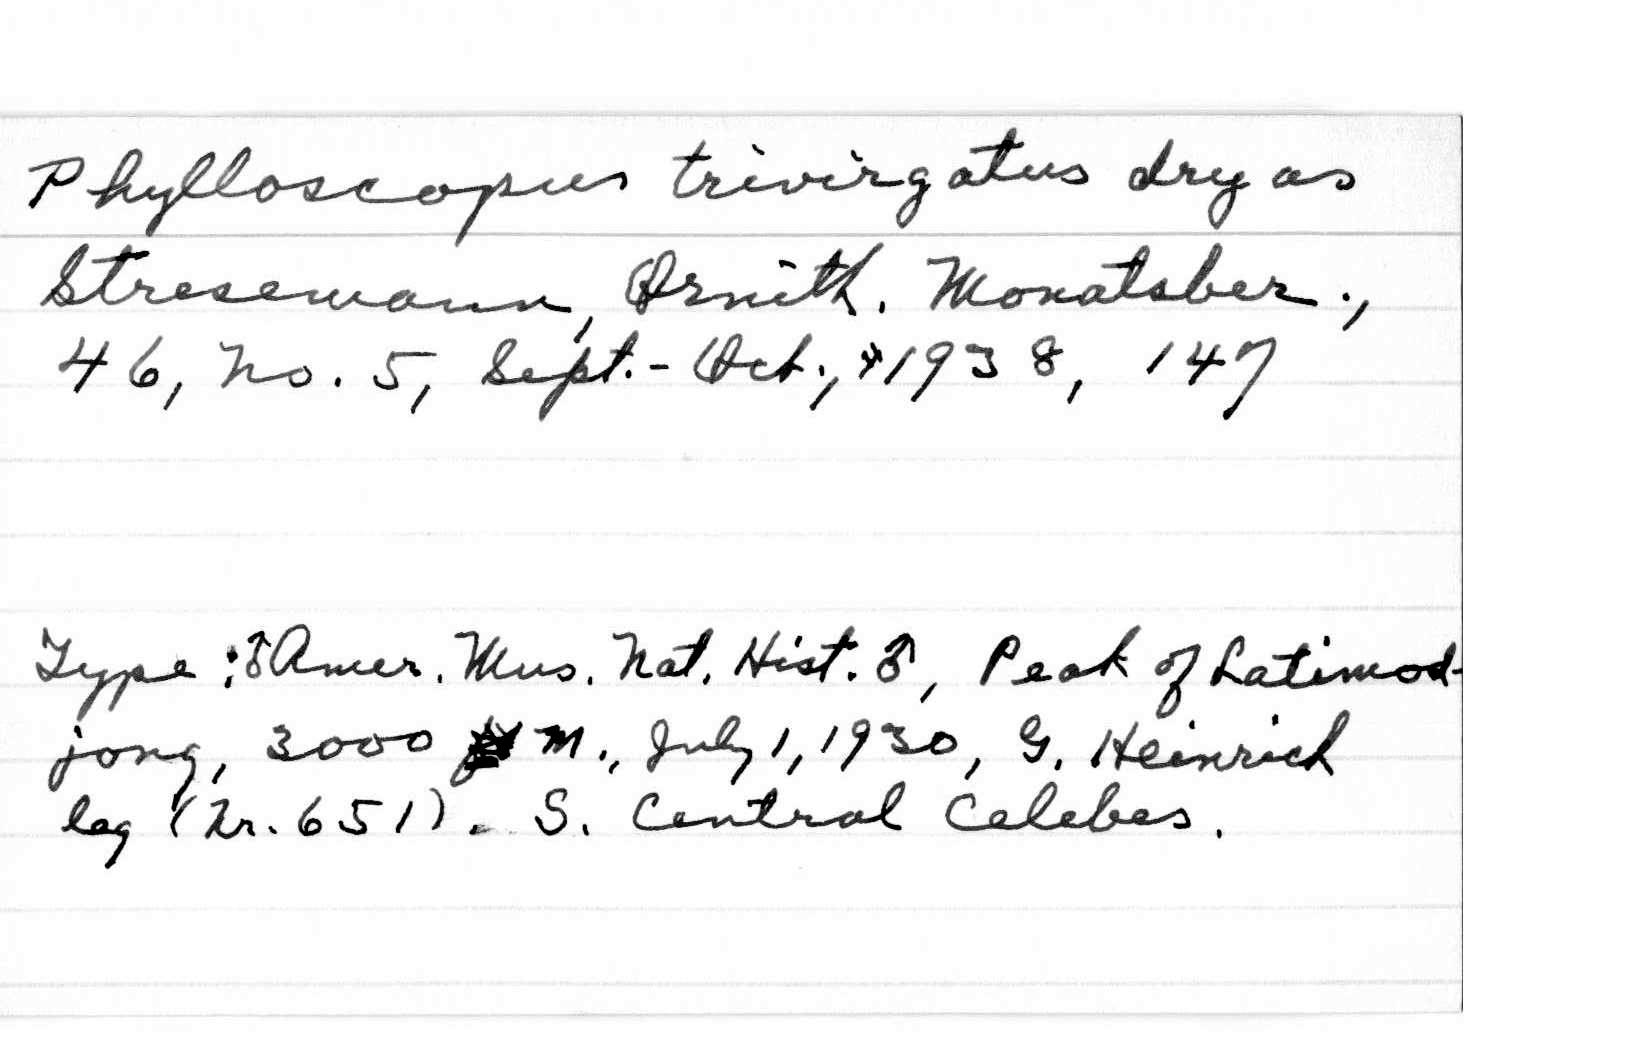 Phylloscopus trivirgatus dryas
Stresemann, Ornith. Monatsber.,
46, no. 5, Sept.-Oct., 1938, 147
Type: ♂ Amer. Mus. Nat. Hist. ♂, Peak of Latimod-
jong, 3000 m., July 1, 1930, G. Heinrich
leg (Nr. 651). S. Central Celebes.